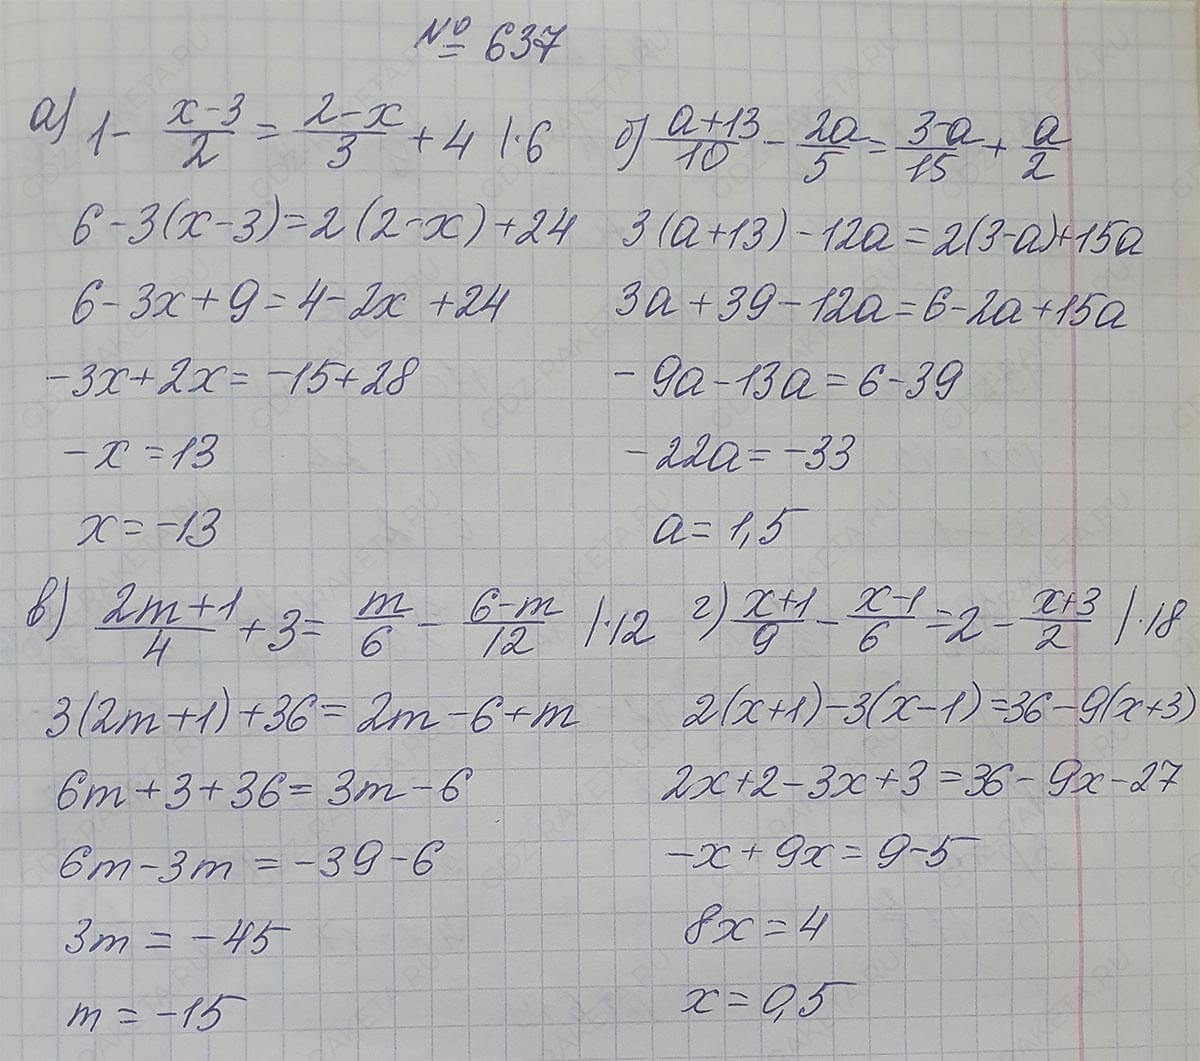 № 637
а) 1 - (x-3)/2 = (2-x)/3 + 4 |·6
6-3(x-3)=2(2-x)+24
6-3x+9=4-2x+24
-3x+2x=-15+28
-x=13
x=-13
б) (a+13)/10 - 2a/5 = (3-a)/15 + a/2
3(a+13)-12a=2(3-a)+15a
3a+39-12a=6-2a+15a
-9a-13a=6-39
-22a=-33
a=1,5
в) (2m+1)/4 + 3 = m/6 - (6-m)/12 |·12
3(2m+1)+36=2m-6+m
6m+3+36=3m-6
6m-3m=-39-6
3m=-45
m=-15
г) (x+1)/9 - (x-1)/6 = 2 - (x+3)/2 |·18
2(x+1)-3(x-1)=36-9(x+3)
2x+2-3x+3=36-9x-27
-x+9x=9-5
8x=4
x=0,5
GDZ-RAKETA.RU